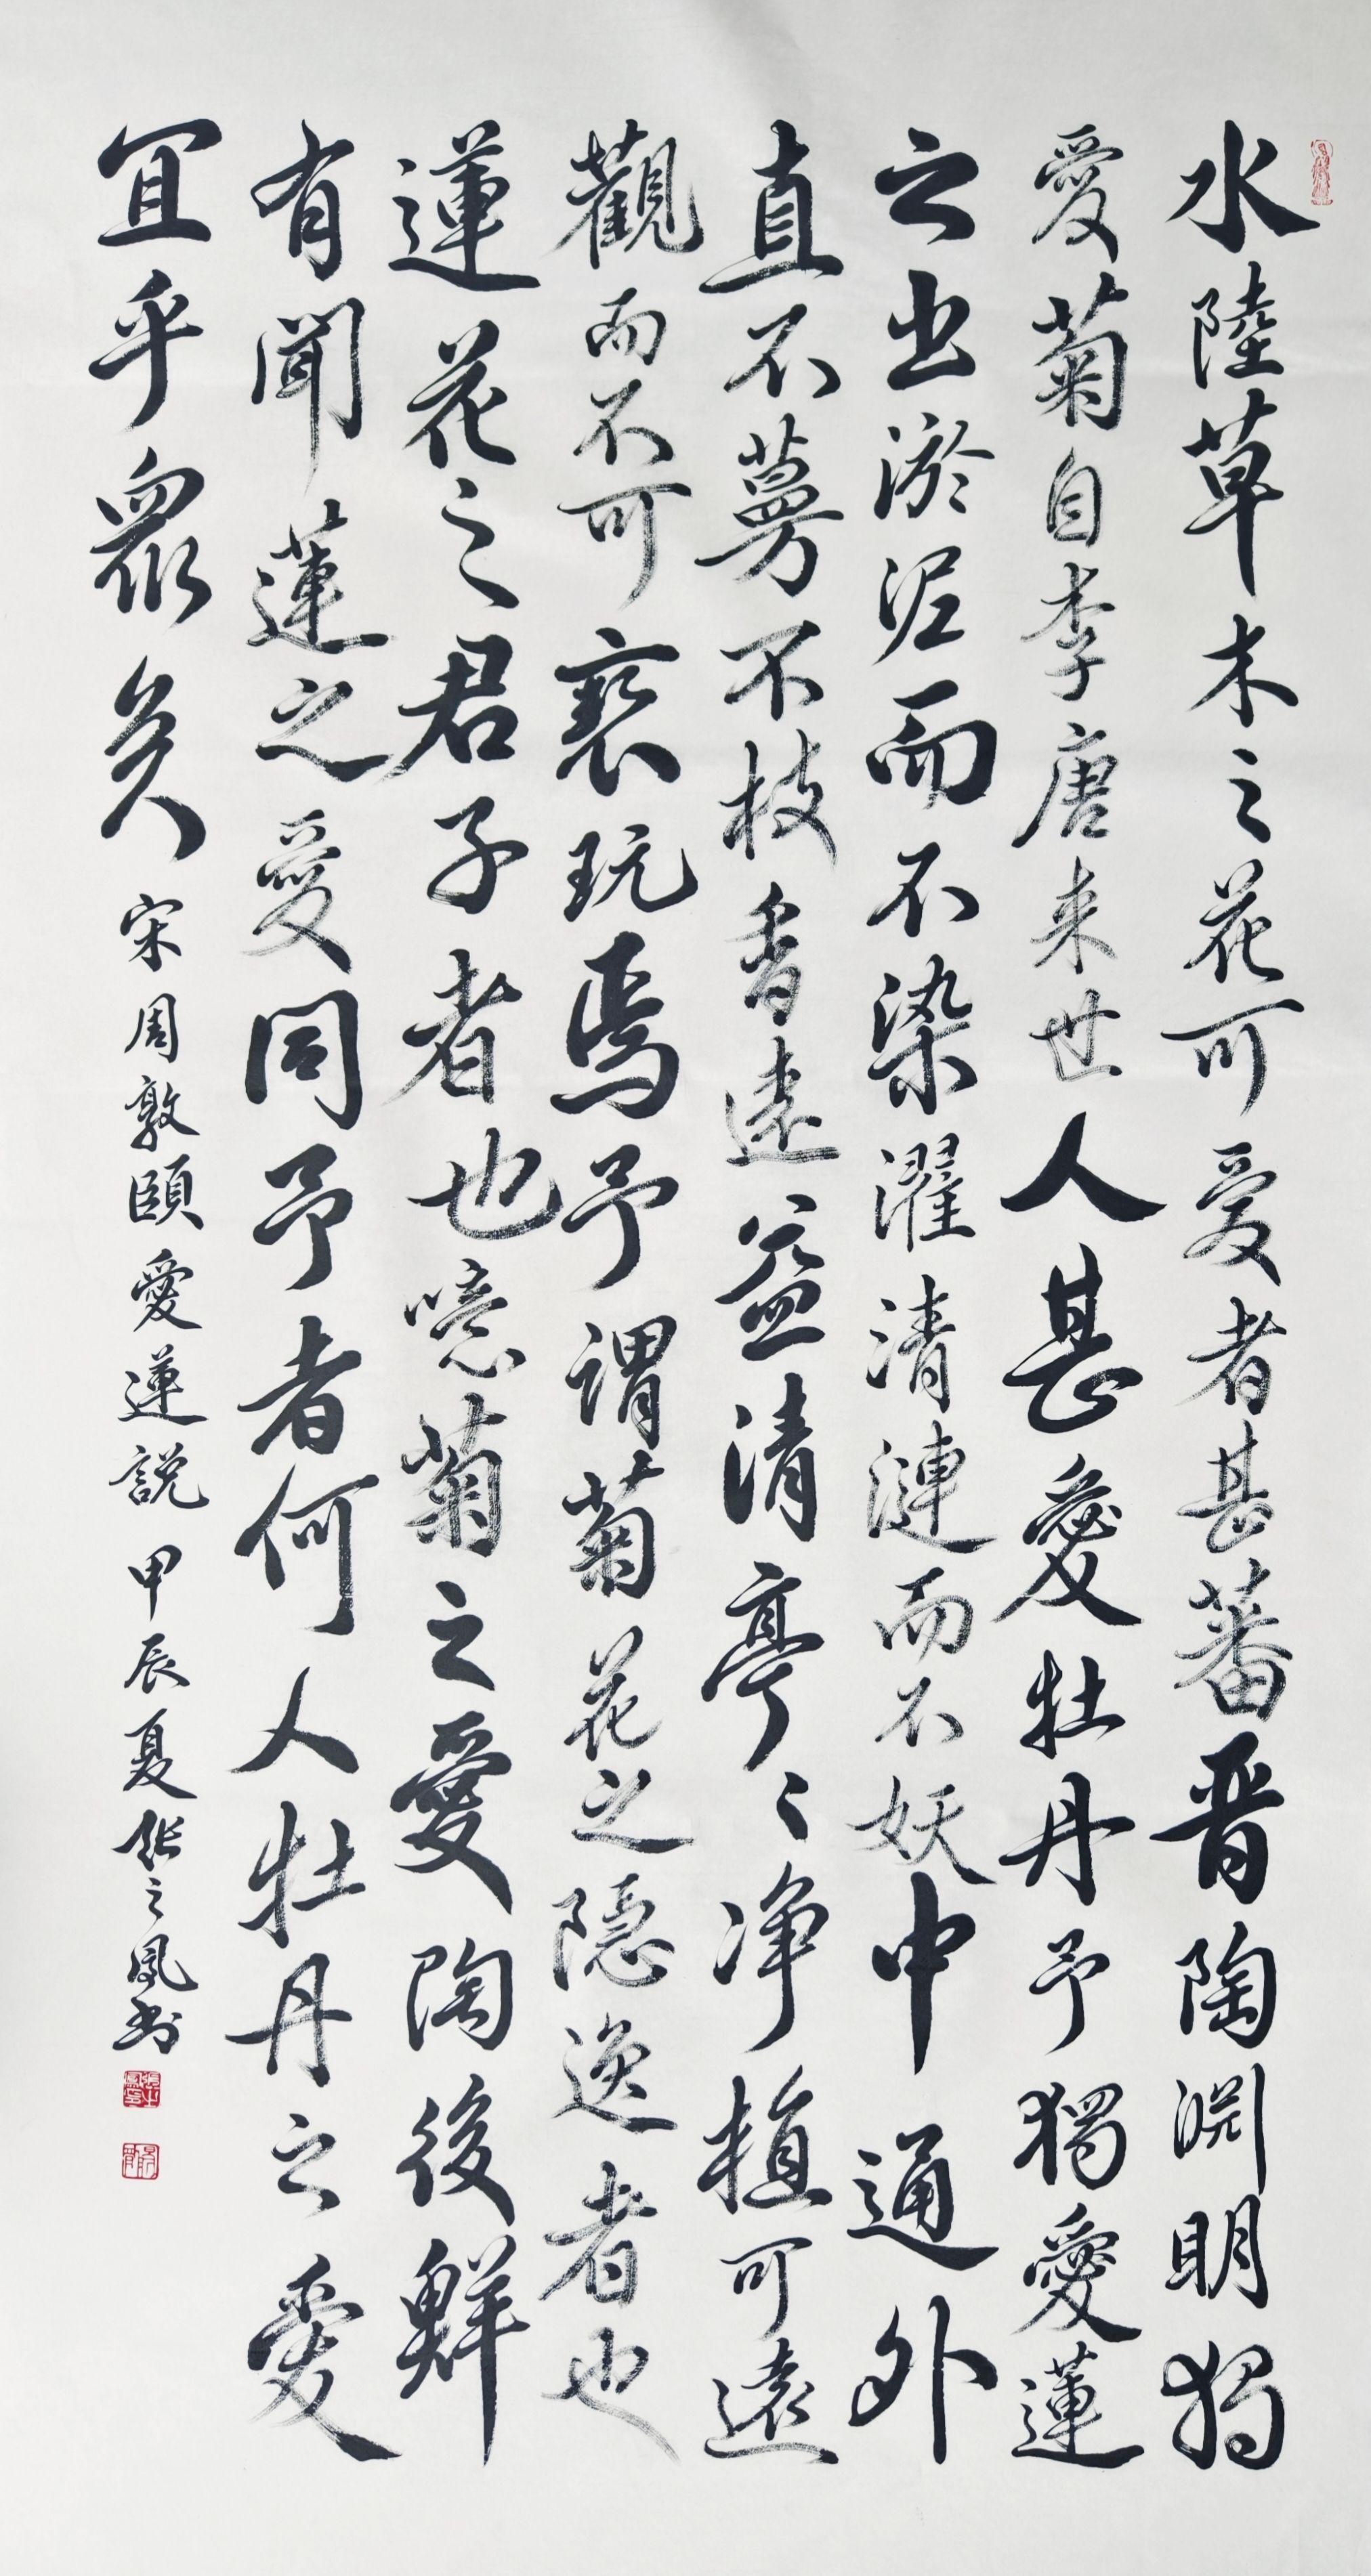 水陸草木之花可爱者甚蕃晋陶渊明獨
愛菊自李唐来世人甚愛牡丹予獨愛蓮
之出淤泥而不染濯清漣而不妖中通外
直不蔓不枝香遠益清亭〻净植可遠
觀而不可褻玩焉予謂菊花之隱逸者也
蓮花之君子者也噫菊之愛陶後鮮
有聞蓮之愛同予者何人牡丹之愛
宜乎眾矣 宋周敦頤愛蓮説 甲辰夏張之鳳书